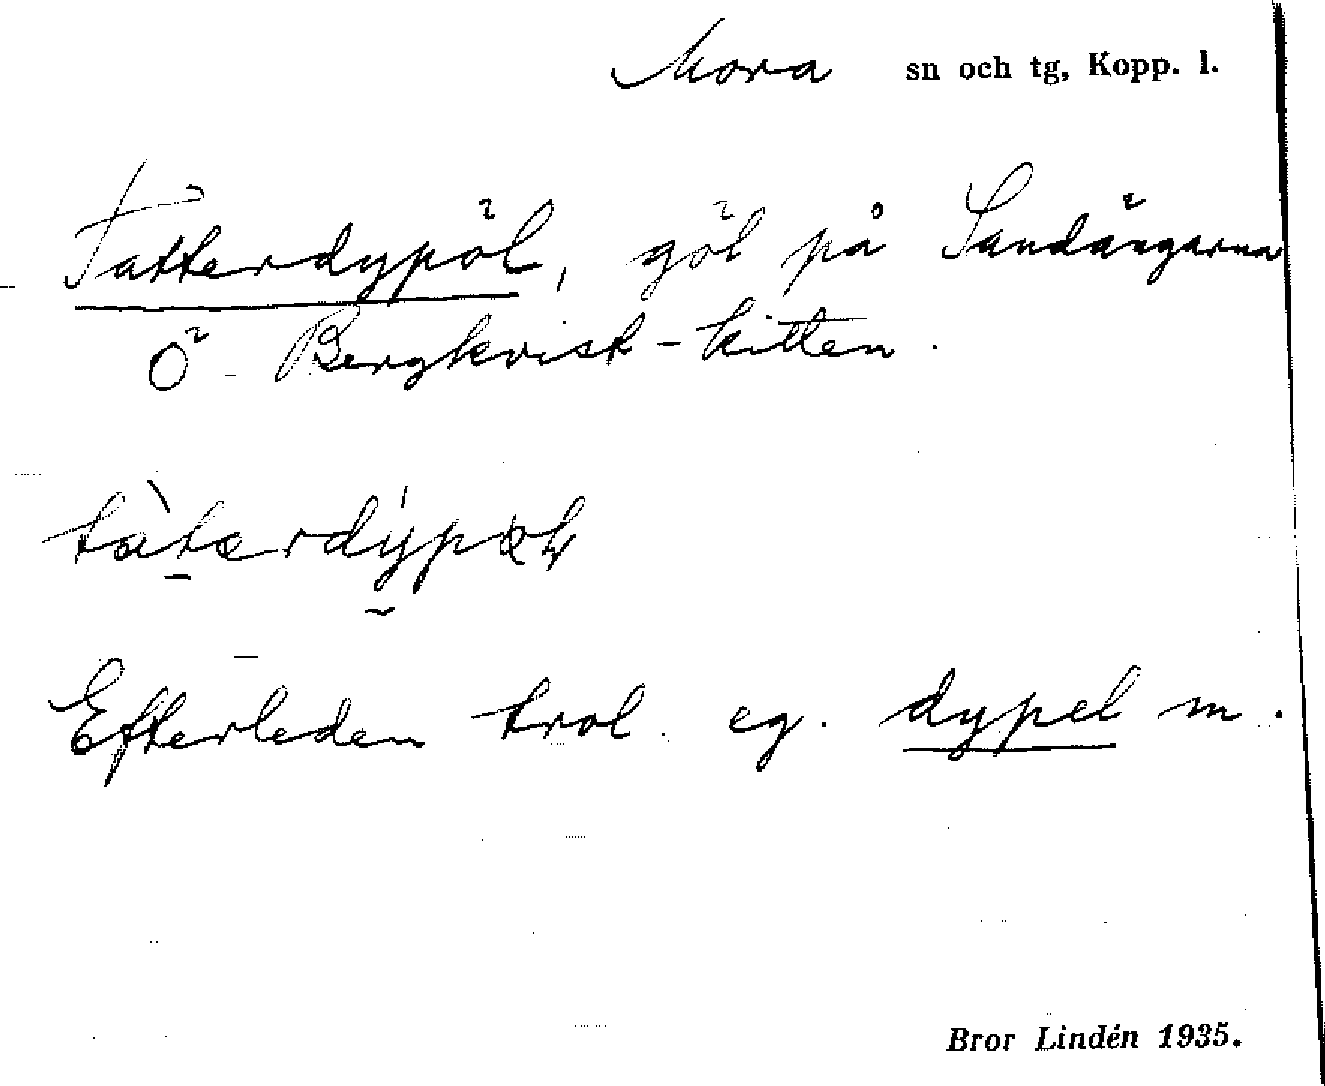 Mora sn och tg, Kopp. l.
Tatterdypöl, göl på Sandängarna
Ö Bergkvist-kitten.
Efterleden trol. eg. dypel m.
Bror Lindén 1935.